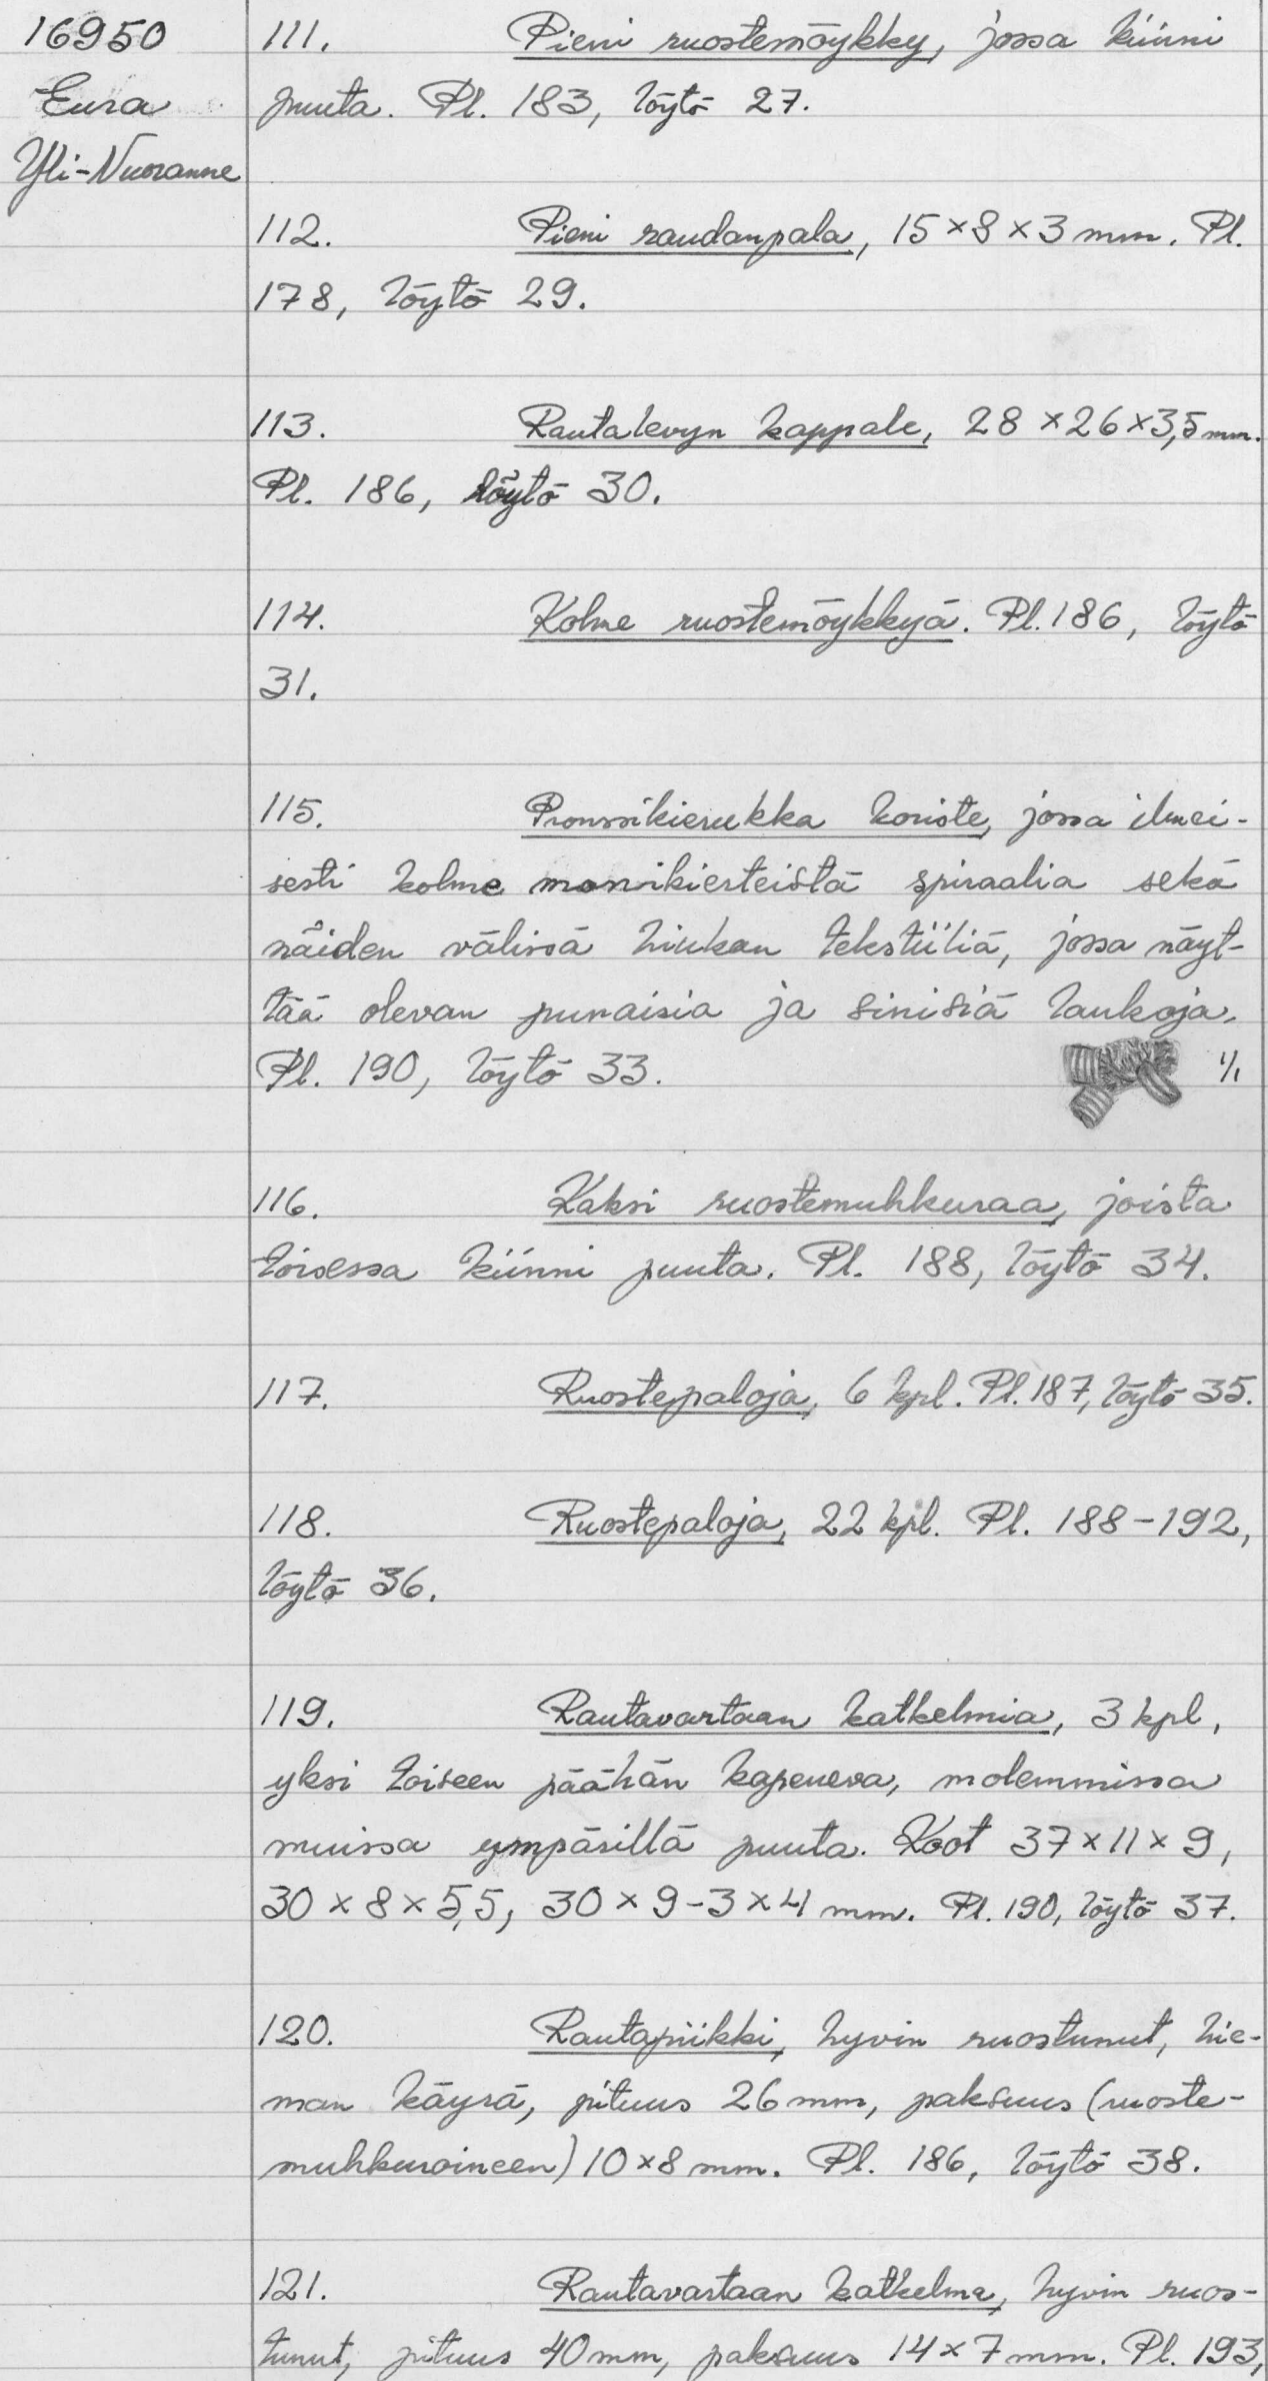 16950
Eura
Yli-Nuoranne
111. Pieni ruostemöykky, jossa kiinni
puuta. Pl. 183, löytö 27.
112. Pieni raudanpala, 15×8×3 mm. Pl.
178, löytö 29.
113. Rautalevyn kappale, 28×26×3,5 mm.
Pl. 186, löytö 30.
114. Kolme ruostemöykkyä. Pl. 186, löytö
31.
115. Pronssikierukka koriste, jossa ilmei-
sesti kolme monikierteistä spiraalia sekä
näiden välissä hiukan tekstiiliä, jossa näyt-
tää olevan punaisia ja sinisiä lankoja.
Pl. 190, löytö 33. 1/1
116. Kaksi ruostemuhkuraa, joista
toisessa kiinni puuta. Pl. 188, löytö 34.
117. Ruostepaloja, 6 kpl. Pl. 187, löytö 35.
118. Ruostepaloja, 22 kpl. Pl. 188-192,
löytö 36.
119. Rautavartaan katkelmia, 3 kpl,
yksi toiseen päähän kapeneva, molemmissa
muissa ympärillä puuta. Koot 37×11×9,
30×8×5,5, 30×9-3×4 mm. Pl. 190, löytö 37.
120. Rautapiikki, hyvin ruostunut, hie-
man käyrä, pituus 26 mm, paksuus (ruoste-
muhkuroineen) 10×8 mm. Pl. 186, löytö 38.
121. Rautavartaan katkelma, hyvin ruos-
tunut, pituus 40 mm, paksuus 14×7 mm. Pl. 193,